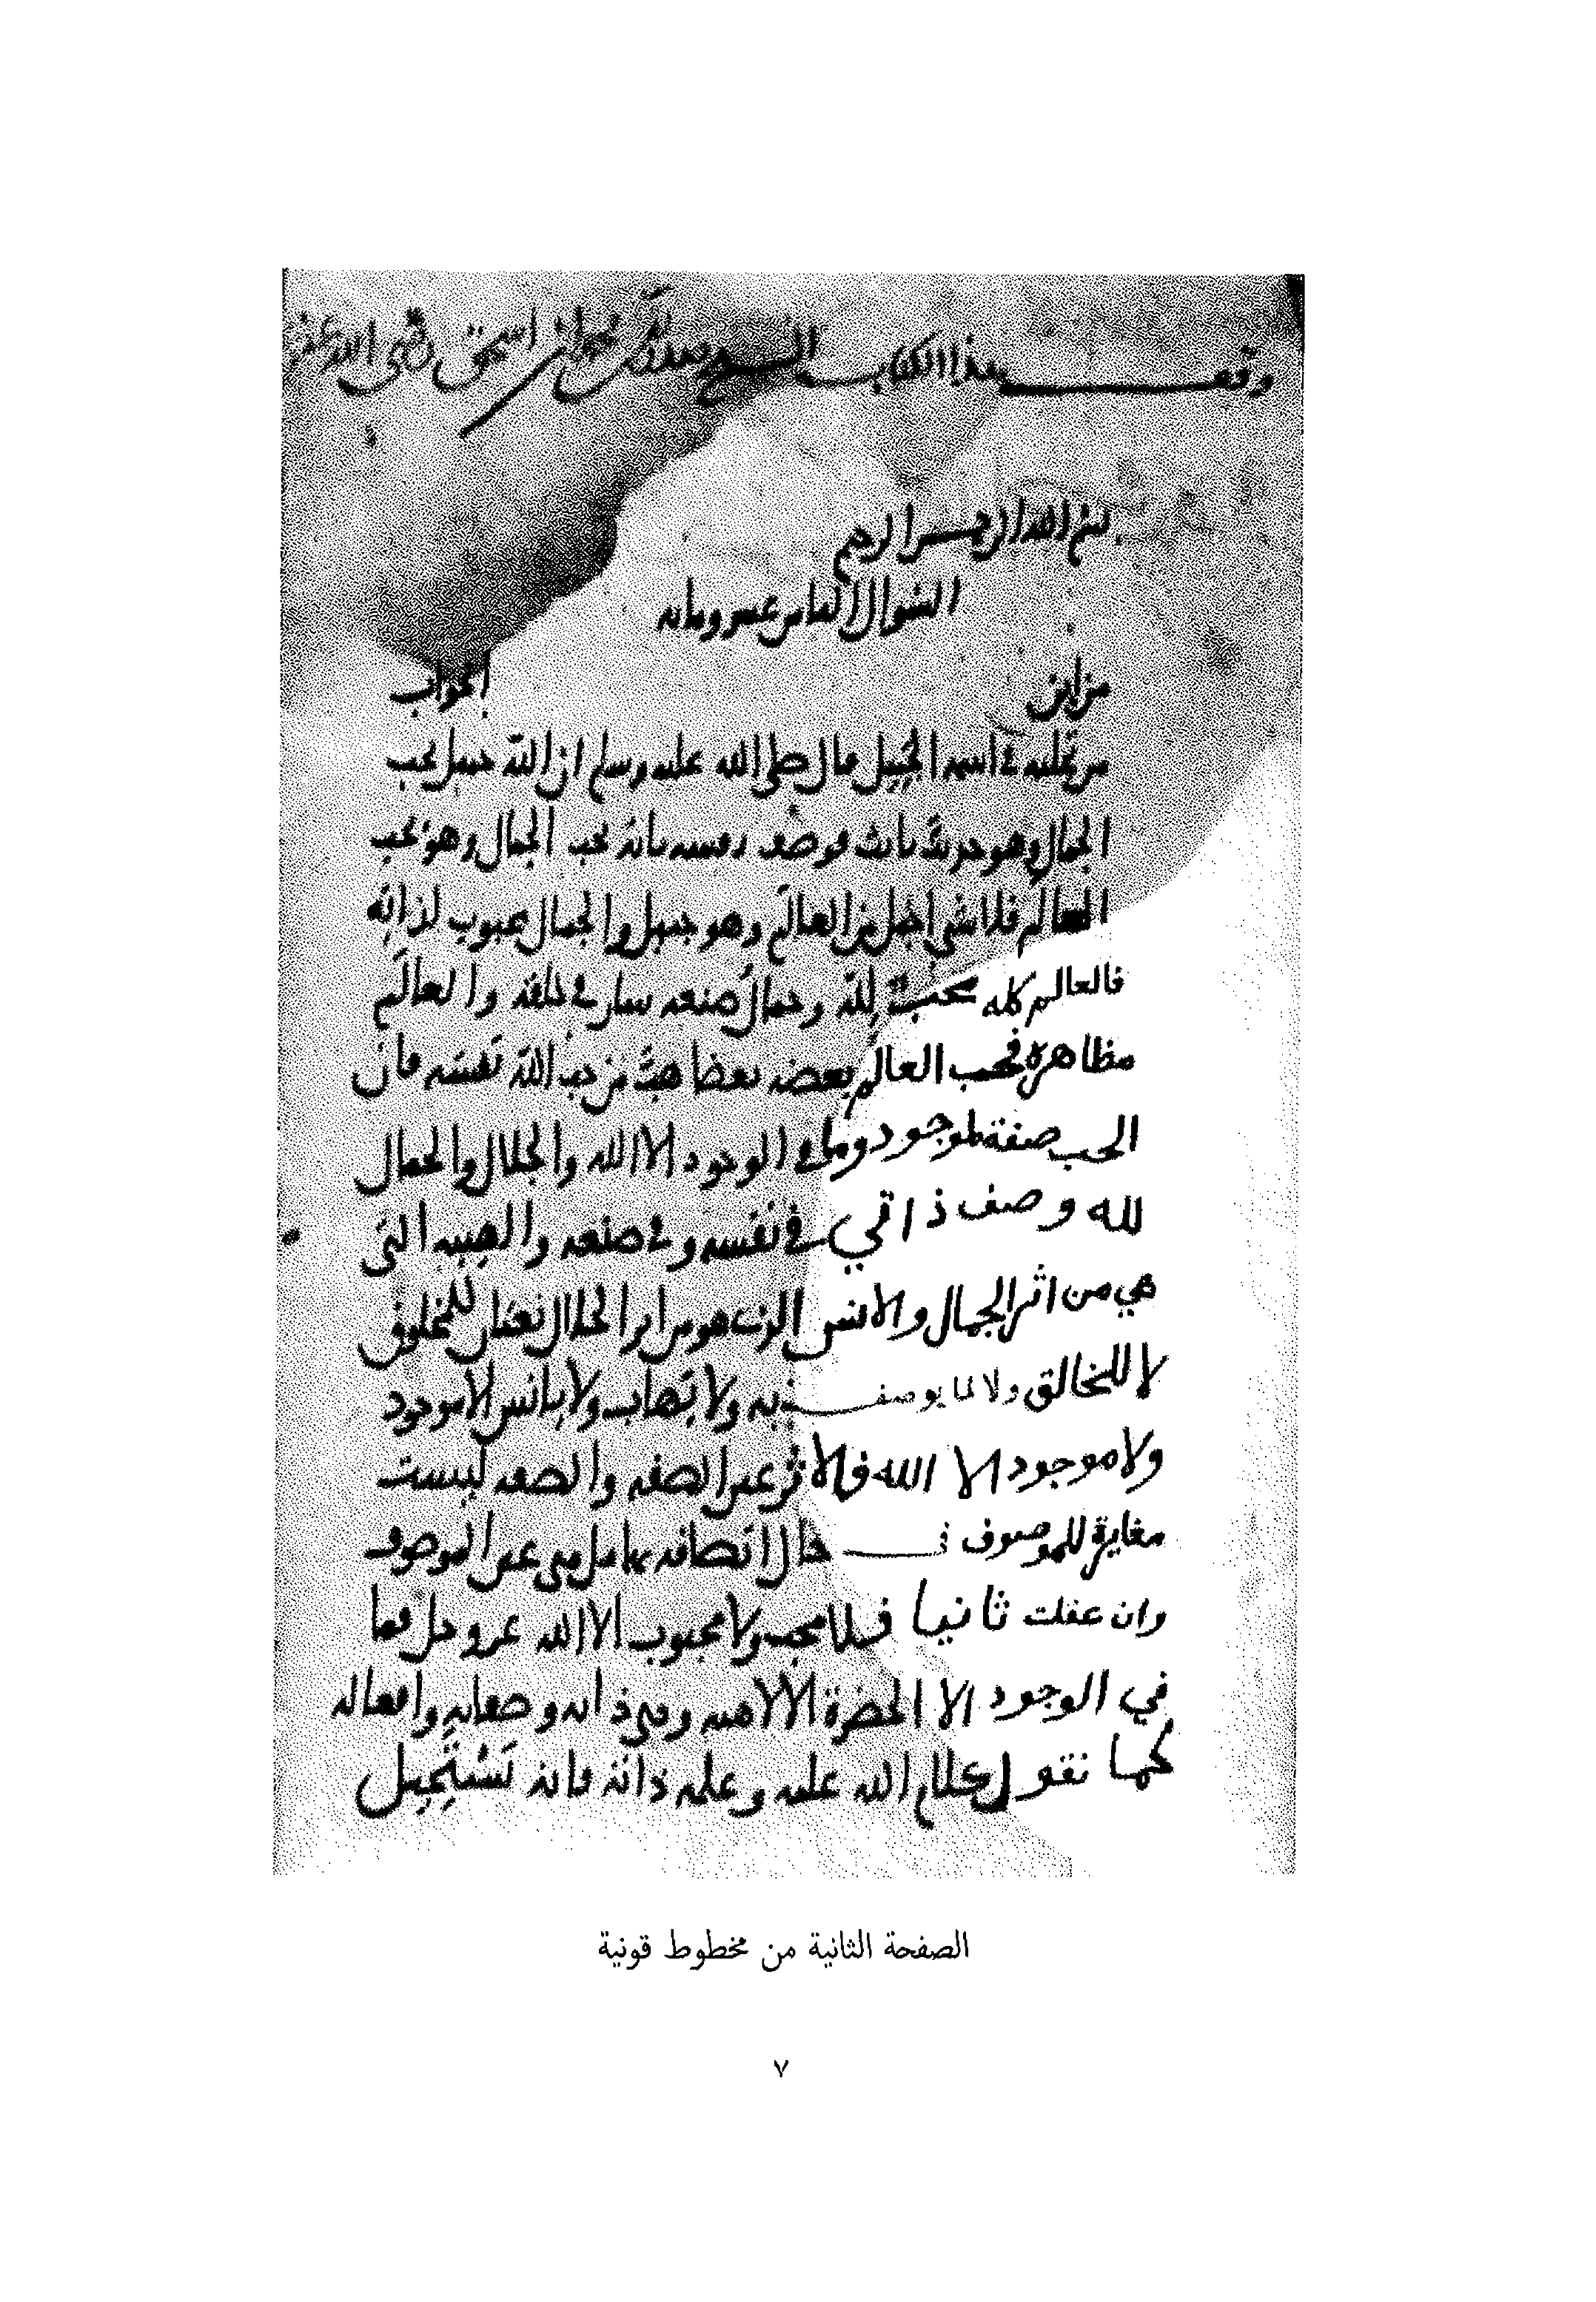 وقف هذا الكتاب الشيخ محمد بن اسحق رضي الله عنه
بسم الله الرحمن الرحيم
السؤال الثامن عشر ومائه
من اين
الجواب
من تجليه في اسمه الجميل قال صلى الله عليه وسلم ان الله جميل يحب
الجمال وهو حديث ثابت فوصف نفسه بانه يحب الجمال وهو يحب
العالم فلا شي اجمل من العالم وهو جميل والجمال محبوب لذاته
فالعالم كله محب لله وجمال صنعه سار في خلقه والعالم
مظاهره فحب العالم بعضه بعضا هو من حب الله نفسه فان
الحب صفة لموجود وما في الوجود الا الله والجلال والجمال
لله وصف ذاتي في نفسه وفي صنعه والهيبه التى
هي من اثر الجمال والانس الذي هو من اثر الجلال نعتان للمخلوق
لا للخالق ولا لما يوصف به ولا يهاب ولا يانس الا موجود
ولا موجود الا الله فالاثر عين الصفه والصفه ليست
مغايرة للموصوف في حال اتصافه بها بل هي عين الموصوف
وان عقلت ثانيا فلا محب ولا محبوب الا الله عز وجل فما
في الوجود الا الحضرة الالاهيه وهي ذاته وصفاته وافعاله
كما نقول كلام الله علمه وعلمه ذاته فانه يستحيل
الصفحة الثانية من مخطوط قونية
٧